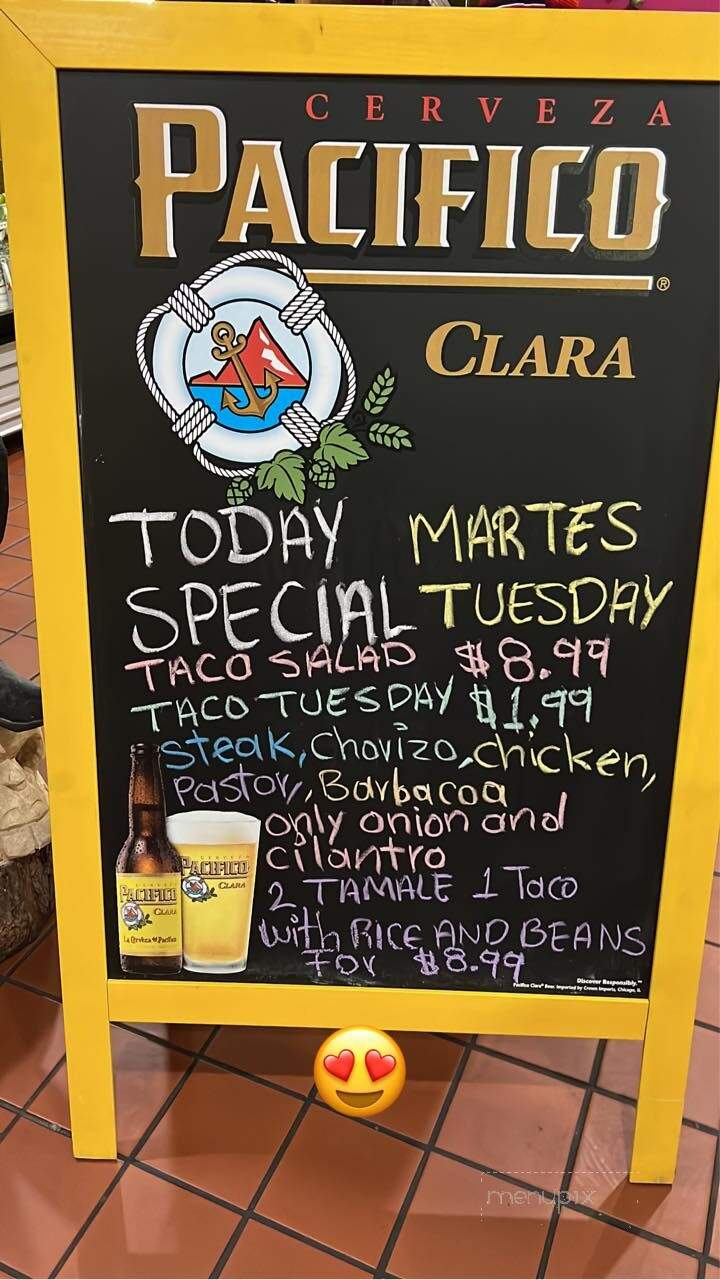 CERVEZA
PACIFICO®
CLARA
TODAY MARTES
SPECIAL TUESDAY
TACO SALAD $8.99
TACO TUESDAY $1.99
steak, Chorizo, chicken,
Pastor, Barbacoa
only onion and
cilantro
2 TAMALE 1 Taco
with RICE AND BEANS
For $8.99
CERVEZA
PACIFICO
CLARA
PACIFICO
CLARA
La Cerveza del Pacífico
Discover Responsibly.™
Pacifico Clara® Beer. Imported by Crown Imports, Chicago, IL
menupix